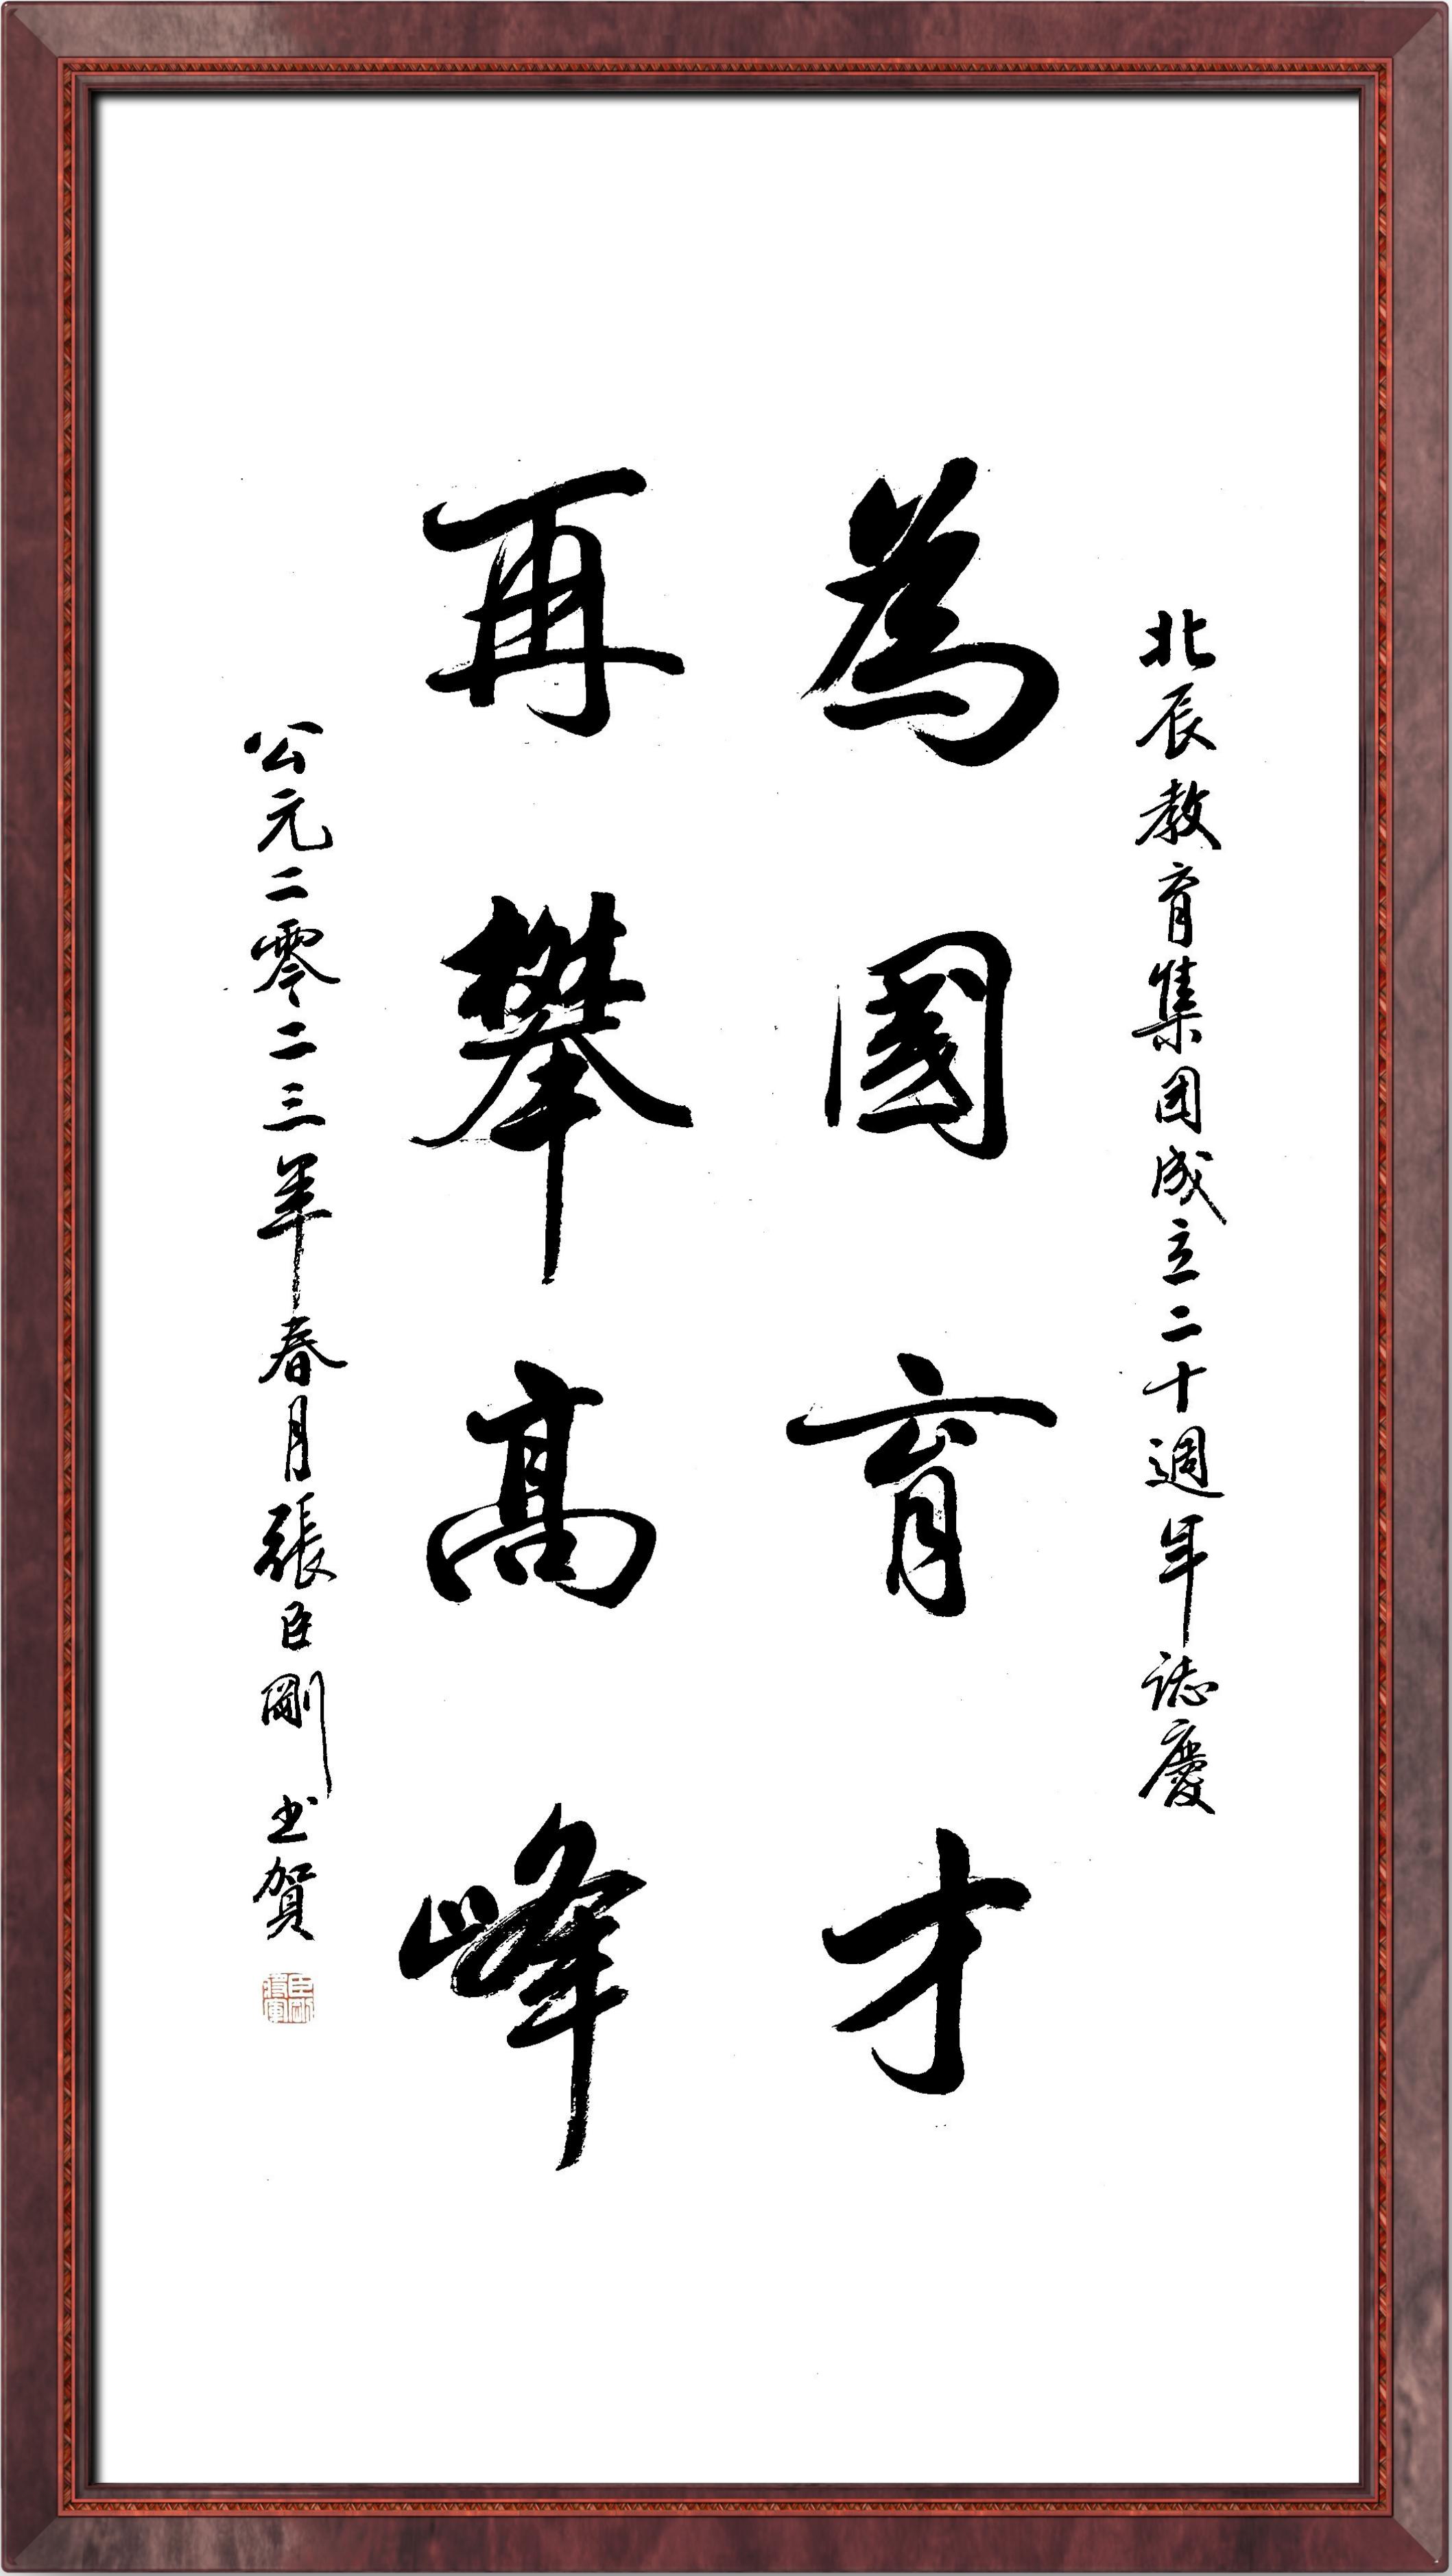 北辰教育集团成立二十週年誌慶
為國育才
再攀高峰
公元二零二三年春月張臣剛书賀